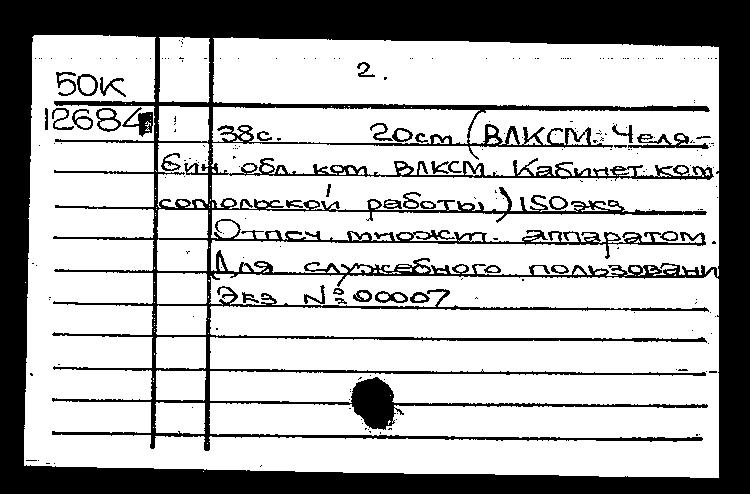 2.
50К
12684
38с. 20см. (ВЛКСМ. Челя-
бин. обл. ком. ВЛКСМ. Кабинет ком-
сомольской работы.) 150экз
Отпеч. множит. аппаратом.
Для служебного пользовани
Экз. № 00007